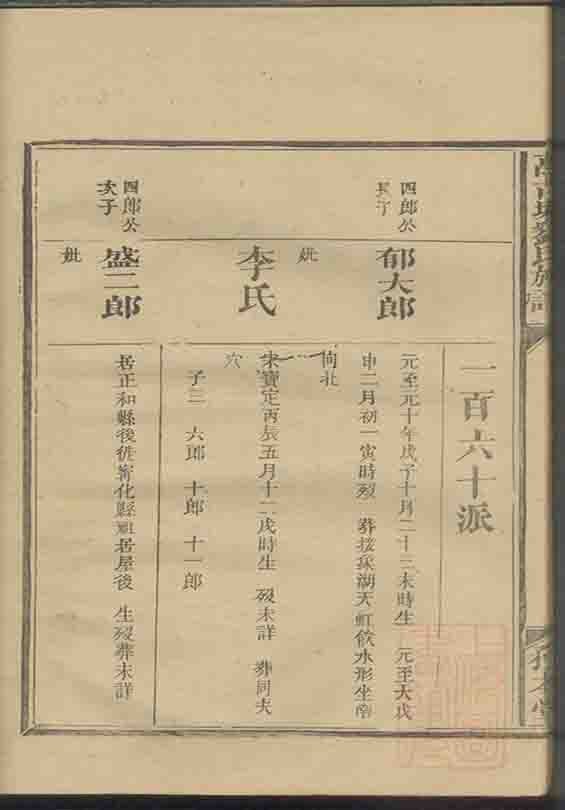 劉氏族譜
一百六十派
四郎公
長子
郁大郎
元至元十年戊子十月二十三未時生 元至大戊
申二月初一寅時歿 葬接泉湖天虹飲水形坐南
向北
妣
李氏
宋寶定丙辰五月十二戌時生 歿未詳 葬同夫
穴
子三 六郎 十郎 十一郎
四郎公
次子
盛二郎
妣
居正和縣後徙寧化縣祖居屋後 生歿葬未詳